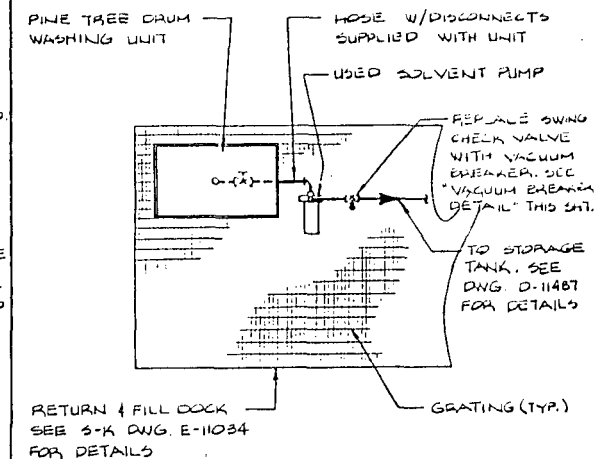 PINE TREE DRUM
WASHING UNIT
HOSE W/DISCONNECTS
SUPPLIED WITH UNIT
USED SOLVENT PUMP
REPLACE SWING
CHECK VALVE
WITH VACUUM
BREAKER. SEE
"VACUUM BREAKER
DETAIL" THIS SHT.
TO STORAGE
TANK. SEE
DWG. D-11487
FOR DETAILS
RETURN & FILL DOCK
SEE S-K DWG. E-11034
FOR DETAILS
GRATING (TYP.)